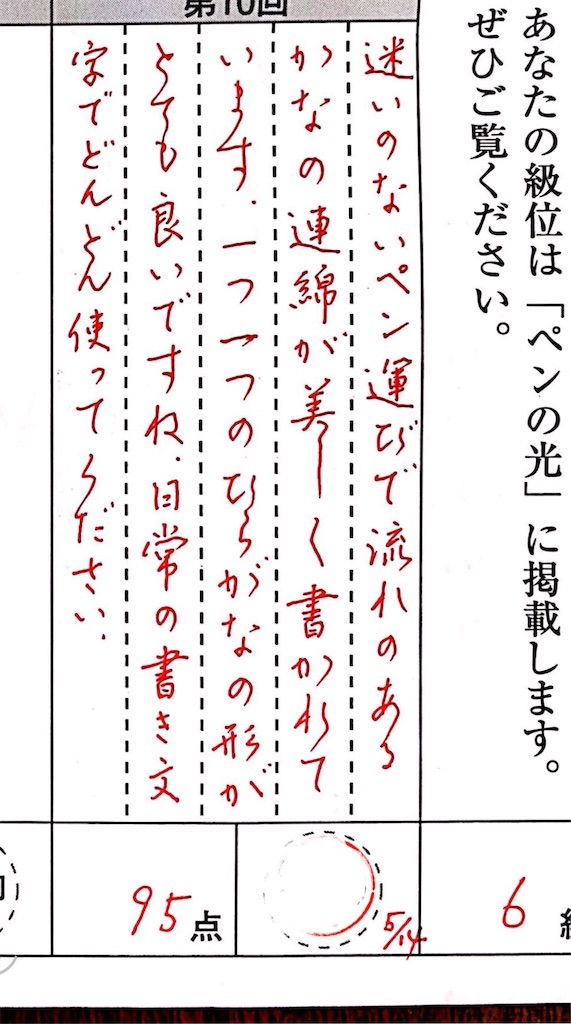 あなたの級位は「ペンの光」に掲載します。
ぜひご覧ください。
第10回
迷いのないペン運びで流れのある
かなの連綿が美しく書かれて
います。一つ一つのひらがなの形が
とても良いですね。日常の書き文
字でどんどん使ってください。
6
5/14
95点